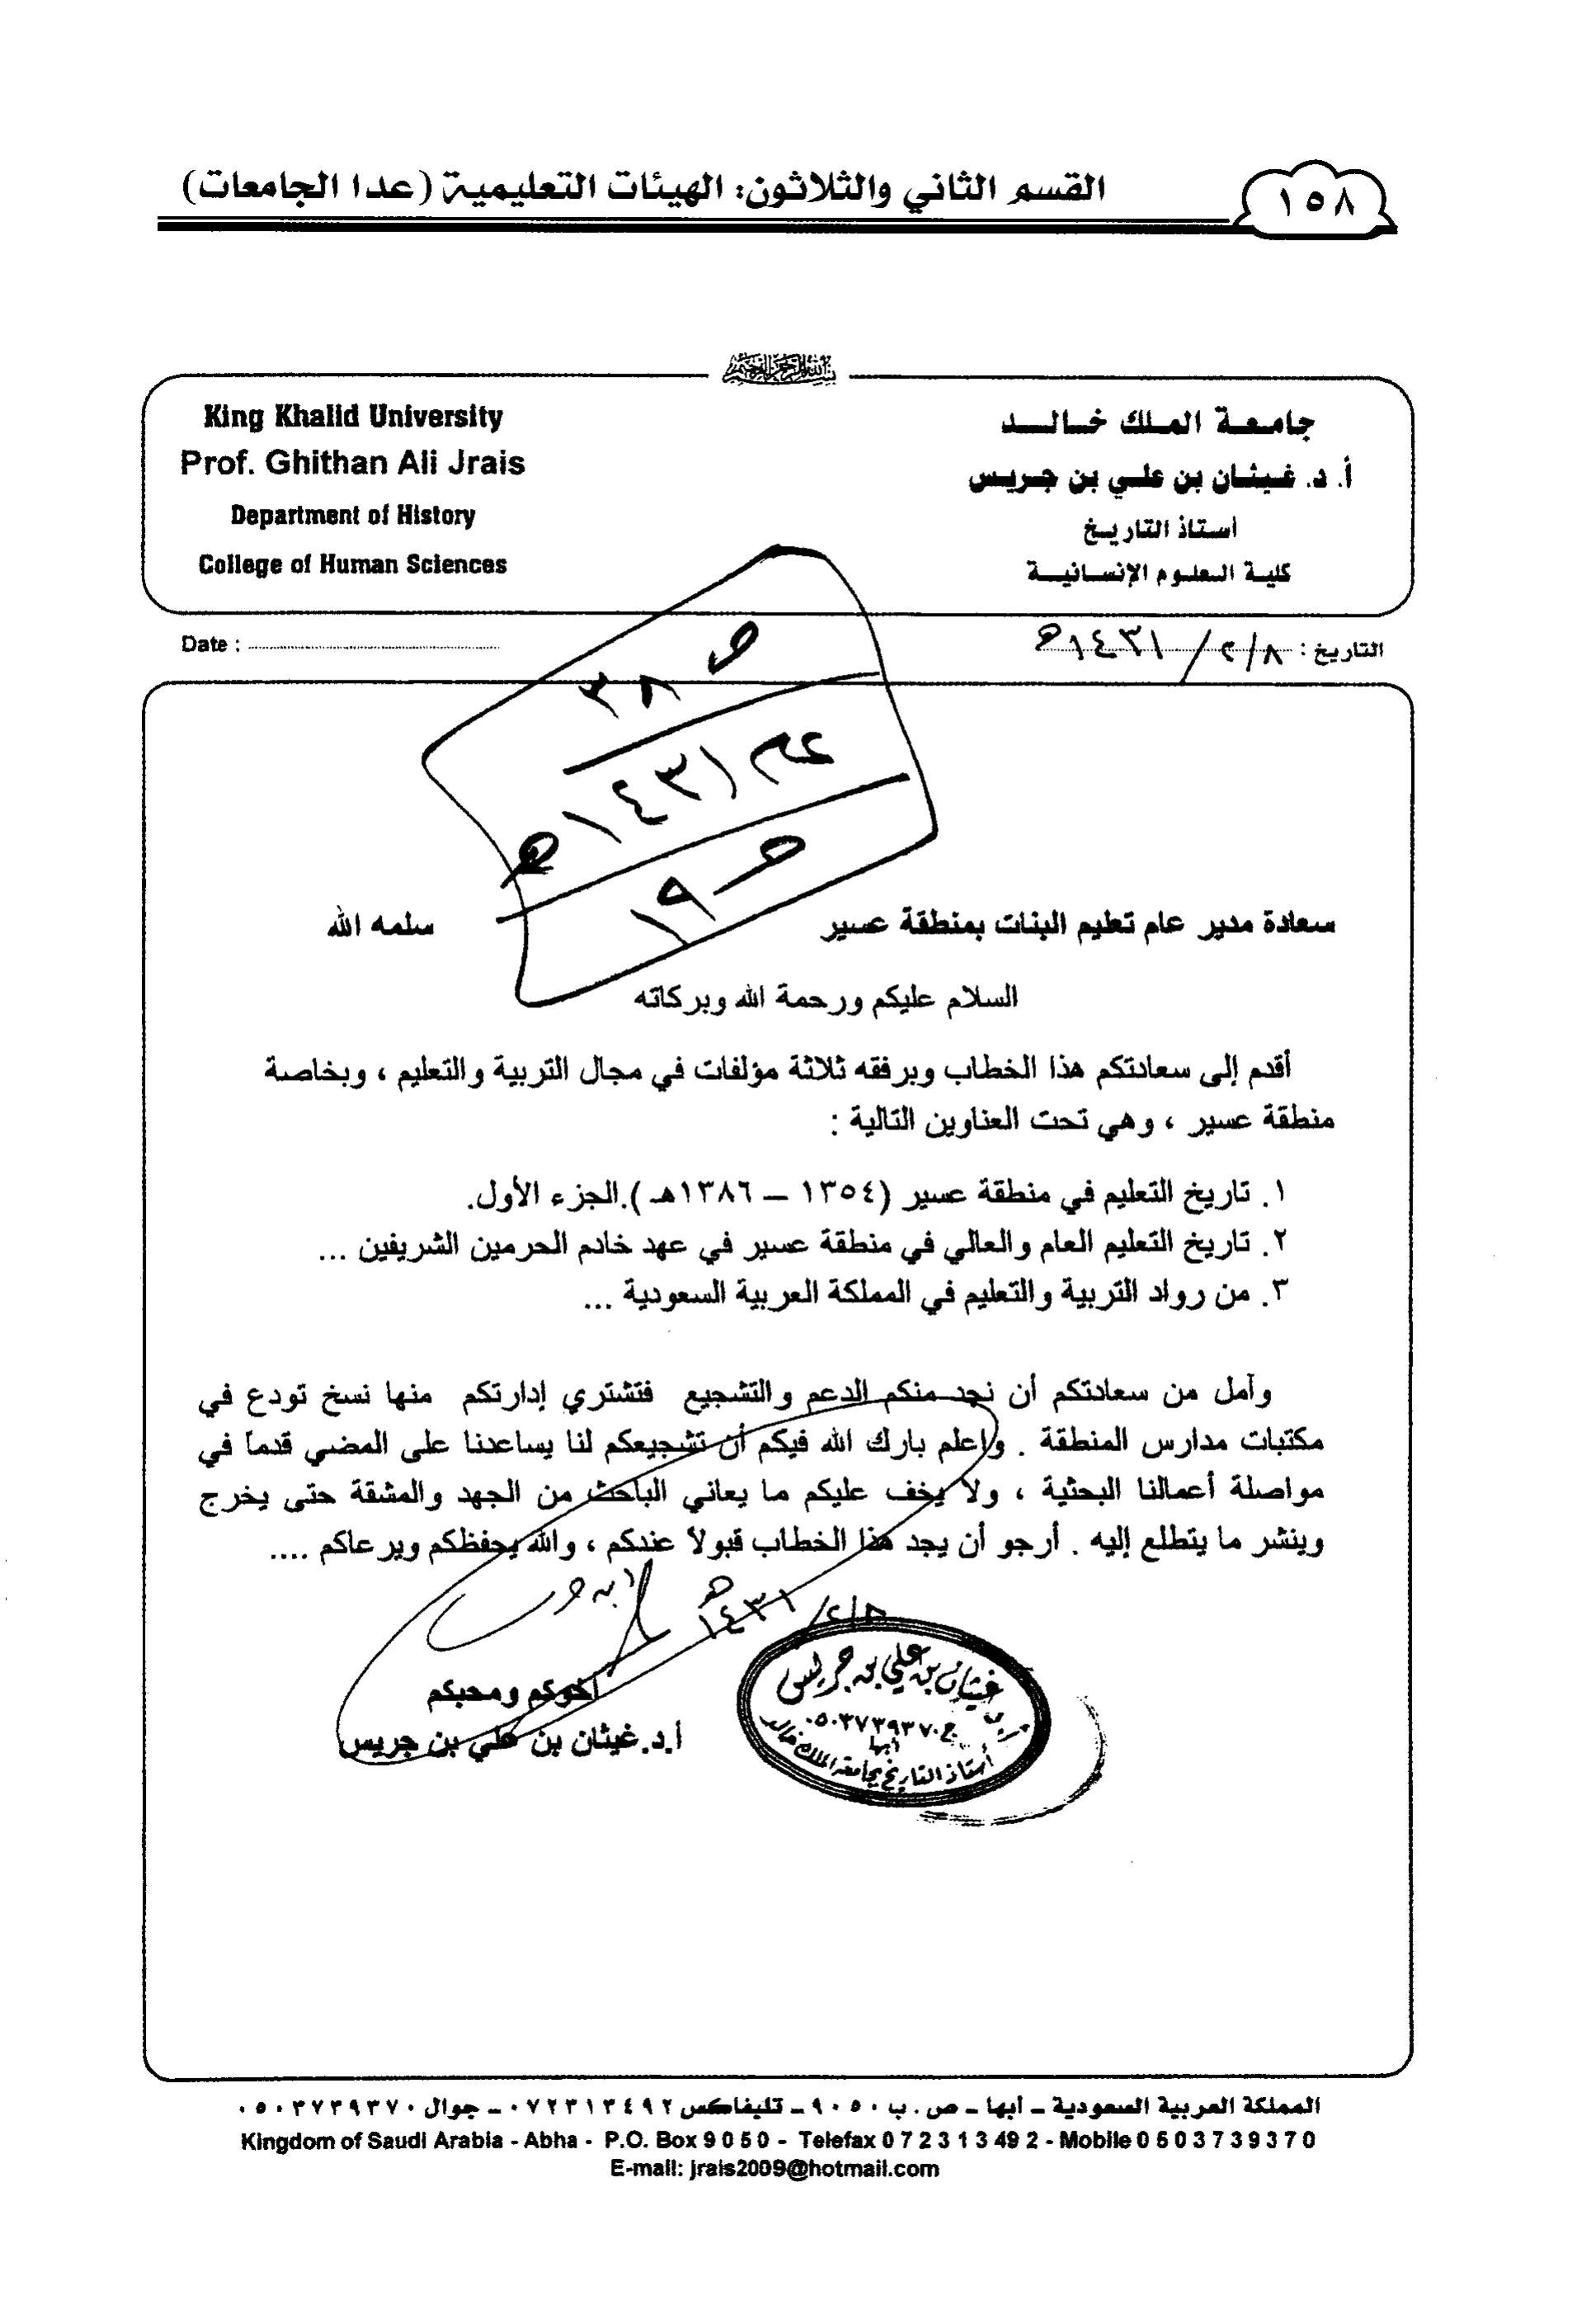 ١٥٨
القسم الثاني والثلاثون: الهيئات التعليمية (عدا الجامعات)
بسم الله الرحمن الرحيم
جامعة الملك خالد
أ. د. غيثان بن علي بن جريس
أستاذ التاريخ
كلية العلوم الإنسانية
King Khalid University
Prof. Ghithan Ali Jrais
Department of History
College of Human Sciences
التاريخ : ٢/٨/ ١٤٣١هـ
Date :
ص ٣٨
عام ١٤٣١هـ
ص ١٩
سعادة مدير عام تعليم البنات بمنطقة عسير سلمه الله
السلام عليكم ورحمة الله وبركاته
أقدم إلى سعادتكم هذا الخطاب وبرفقه ثلاثة مؤلفات في مجال التربية والتعليم ، وبخاصة
منطقة عسير ، وهي تحت العناوين التالية :
١. تاريخ التعليم في منطقة عسير (١٣٥٤ – ١٣٨٦هـ).الجزء الأول.
٢. تاريخ التعليم العام والعالي في منطقة عسير في عهد خادم الحرمين الشريفين ...
٣. من رواد التربية والتعليم في المملكة العربية السعودية ...
وآمل من سعادتكم أن نجد منكم الدعم والتشجيع فتشتري إدارتكم منها نسخ تودع في
مكتبات مدارس المنطقة . واعلم بارك الله فيكم أن تشجيعكم لنا يساعدنا على المضي قدماً في
مواصلة أعمالنا البحثية ، ولا يخف عليكم ما يعاني الباحث من الجهد والمشقة حتى يخرج
وينشر ما يتطلع إليه . أرجو أن يجد هذا الخطاب قبولاً عندكم ، والله يحفظكم ويرعاكم ....
٢/٨/ ١٤٣١هـ
أخوكم ومحبكم
أ.د.غيثان بن علي بن جريس
غيثان بن علي بن جريس
ج ٠٥٠٣٧٣٩٣٧٠
أبها
أستاذ التاريخ بجامعة الملك خالد
المملكة العربية السعودية – أبها – ص . ب ٩٠٥٠ – تليفاكس ٠٧٢٣١٣٤٩٢ – جوال ٠٥٠٣٧٣٩٣٧٠
Kingdom of Saudi Arabia - Abha - P.O. Box 9 0 5 0 - Telefax 0 7 2 3 1 3 49 2 - Mobile 0 5 0 3 7 3 9 3 7 0
E-mail: jrais2009@hotmail.com